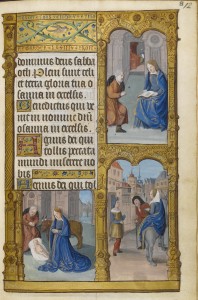 dominus deus sabba
oth Pleni sunt celi
et terra gloria tua o
sanna in excelsis
Benedictus qui ve
nit in nomine dñi
osanna in excelsis
Agnus dei qui
tollis peccata
mundi miserere no
bis
Agnus dei qui tol